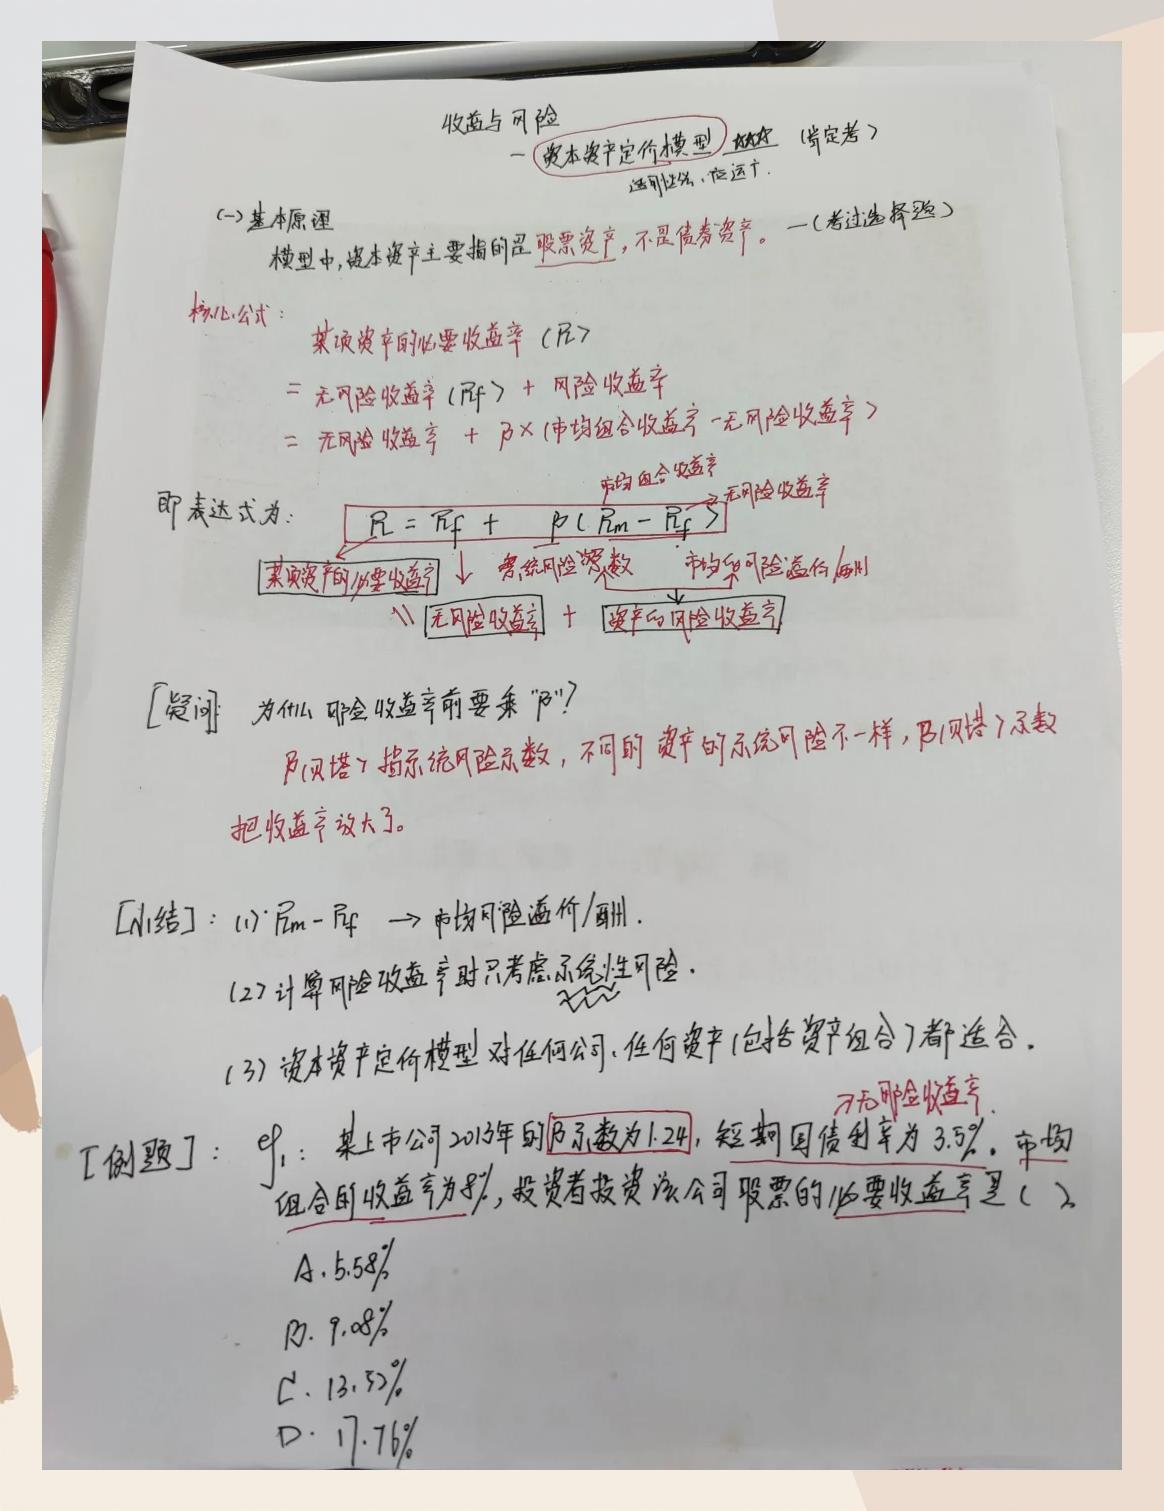 收益与风险
— 资本资产定价模型 ☆☆☆ (肯定考)
适用性强、应运广.
(一) 基本原理
模型中,资本资产主要指的是股票资产,不是债券资产。—(考过选择题)
核心公式:
某项资产的必要收益率 (R)
= 无风险收益率 (Rf) + 风险收益率
= 无风险收益率 + β×(市场组合收益率-无风险收益率)
市场组合收益率
无风险收益率
即表达式为: R = Rf + β(Rm - Rf)
某项资产的必要收益率 系统风险系数 市场的风险溢价/酬
无风险收益率 + 资产的风险收益率
[疑问]: 为什么风险收益率前要乘"β"?
β(贝塔)指示统风险示数,不同的资产的示统风险不一样,β(贝塔)示数
把收益率放大了。
[小结]: (1) Rm-Rf → 市场风险溢价/酬.
(2) 计算风险收益率时只考虑示统性风险.
(3) 资本资产定价模型对任何公司、任何资产(包括资产组合)都适合.
无风险收益率.
[例题]: eg1: 某上市公司2013年的β示数为1.24,短期国债利率为3.5%。市场
组合的收益率为8%,投资者投资该公司股票的必要收益率是( )
A. 5.58%
B. 9.08%
C. 13.52%
D. 17.76%